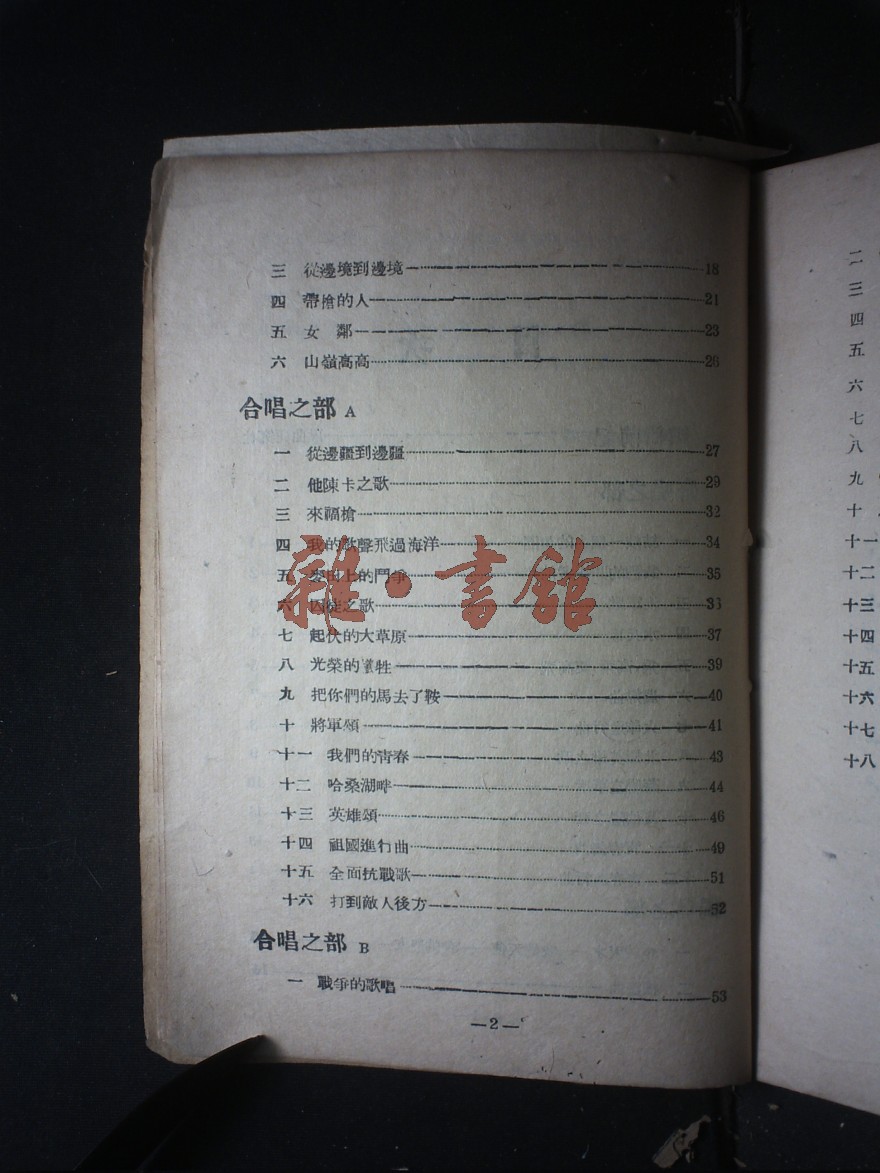 三 從邊境到邊境 18
四 帶槍的人 21
五 女鄰 23
六 山嶺高高 26
合唱之部 A
一 從邊疆到邊疆 27
二 他陳卡之歌 29
三 來福槍 32
四 我的歌聲飛過海洋 34
五 的鬥爭 35
六 囚徒之歌 36
七 起伏的大草原 37
八 光榮的犧牲 39
九 把你們的馬去了鞍 40
十 將軍頌 41
十一 我們的青春 43
十二 哈桑湖畔 44
十三 英雄頌 46
十四 祖國進行曲 49
十五 全面抗戰歌 51
十六 打到敵人後方 52
合唱之部 B
一 戰爭的歌唱 53
—2—
雜·書館
二
三
四
五
六
七
八
九
十
十一
十二
十三
十四
十五
十六
十七
十八